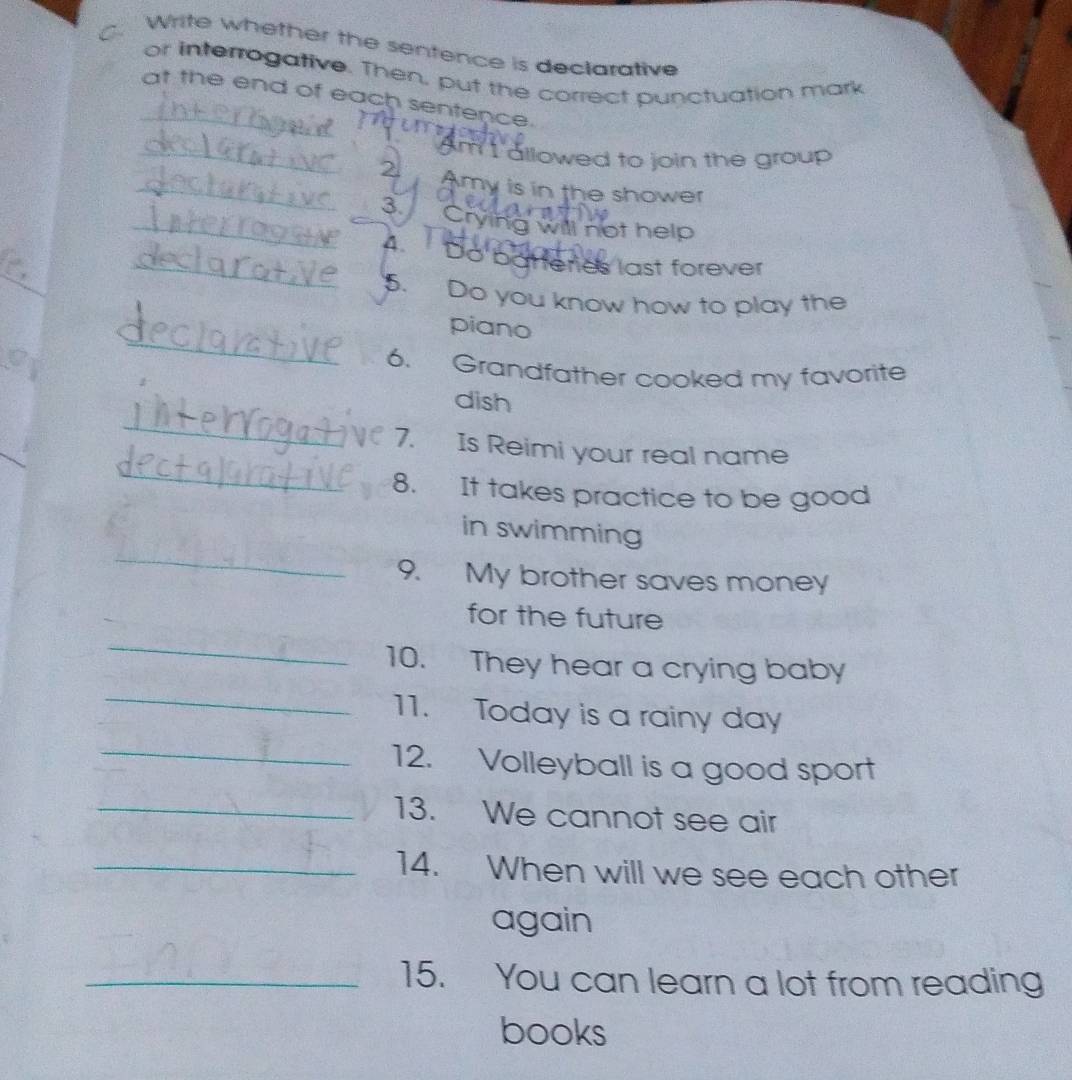 C. Write whether the sentence is declarative
or interrogative. Then, put the correct punctuation mark
at the end of each sentence.
Am I allowed to join the group
declarative 2. Amy is in the shower
declarative
3. Crying will not help
Interrogative 4. Do batteries last forever
declarative 5. Do you know how to play the
piano
declarative 6. Grandfather cooked my favorite
dish
interrogative 7. Is Reimi your real name
8. It takes practice to be good
in swimming
9. My brother saves money
for the future
10. They hear a crying baby
11. Today is a rainy day
12. Volleyball is a good sport
13. We cannot see air
14. When will we see each other
again
15. You can learn a lot from reading
books